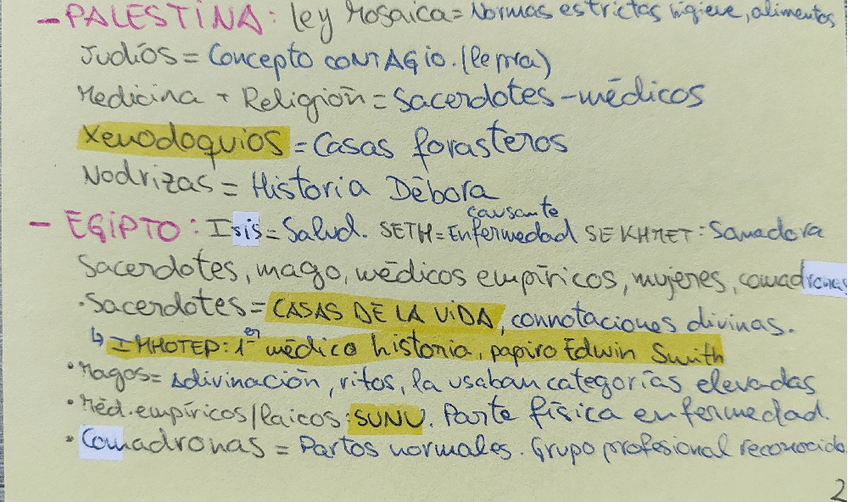 - PALESTINA: Ley Mosaica = Normas estrictas higiene, alimentos
Judíos = Concepto CONTAGIO. (lepra)
Medicina + Religión = Sacerdotes - médicos
Xenodoquios = Casas forasteros
Nodrizas = Historia Débora
- EGIPTO: Isis = Salud. SETH = causante Enfermedad SEKHMET: Sanadora
Sacerdotes, mago, médicos empíricos, mujeres, comadronas
·Sacerdotes = CASAS DE LA VIDA, connotaciones divinas.
↳ IMHOTEP: 1er médico historia, papiro Edwin Smith
·Magos = Adivinación, ritos, la usaban categorías elevadas
·Méd. empíricos/laicos: SUNU. Parte física enfermedad.
·Comadronas = Partos normales. Grupo profesional reconocido
2